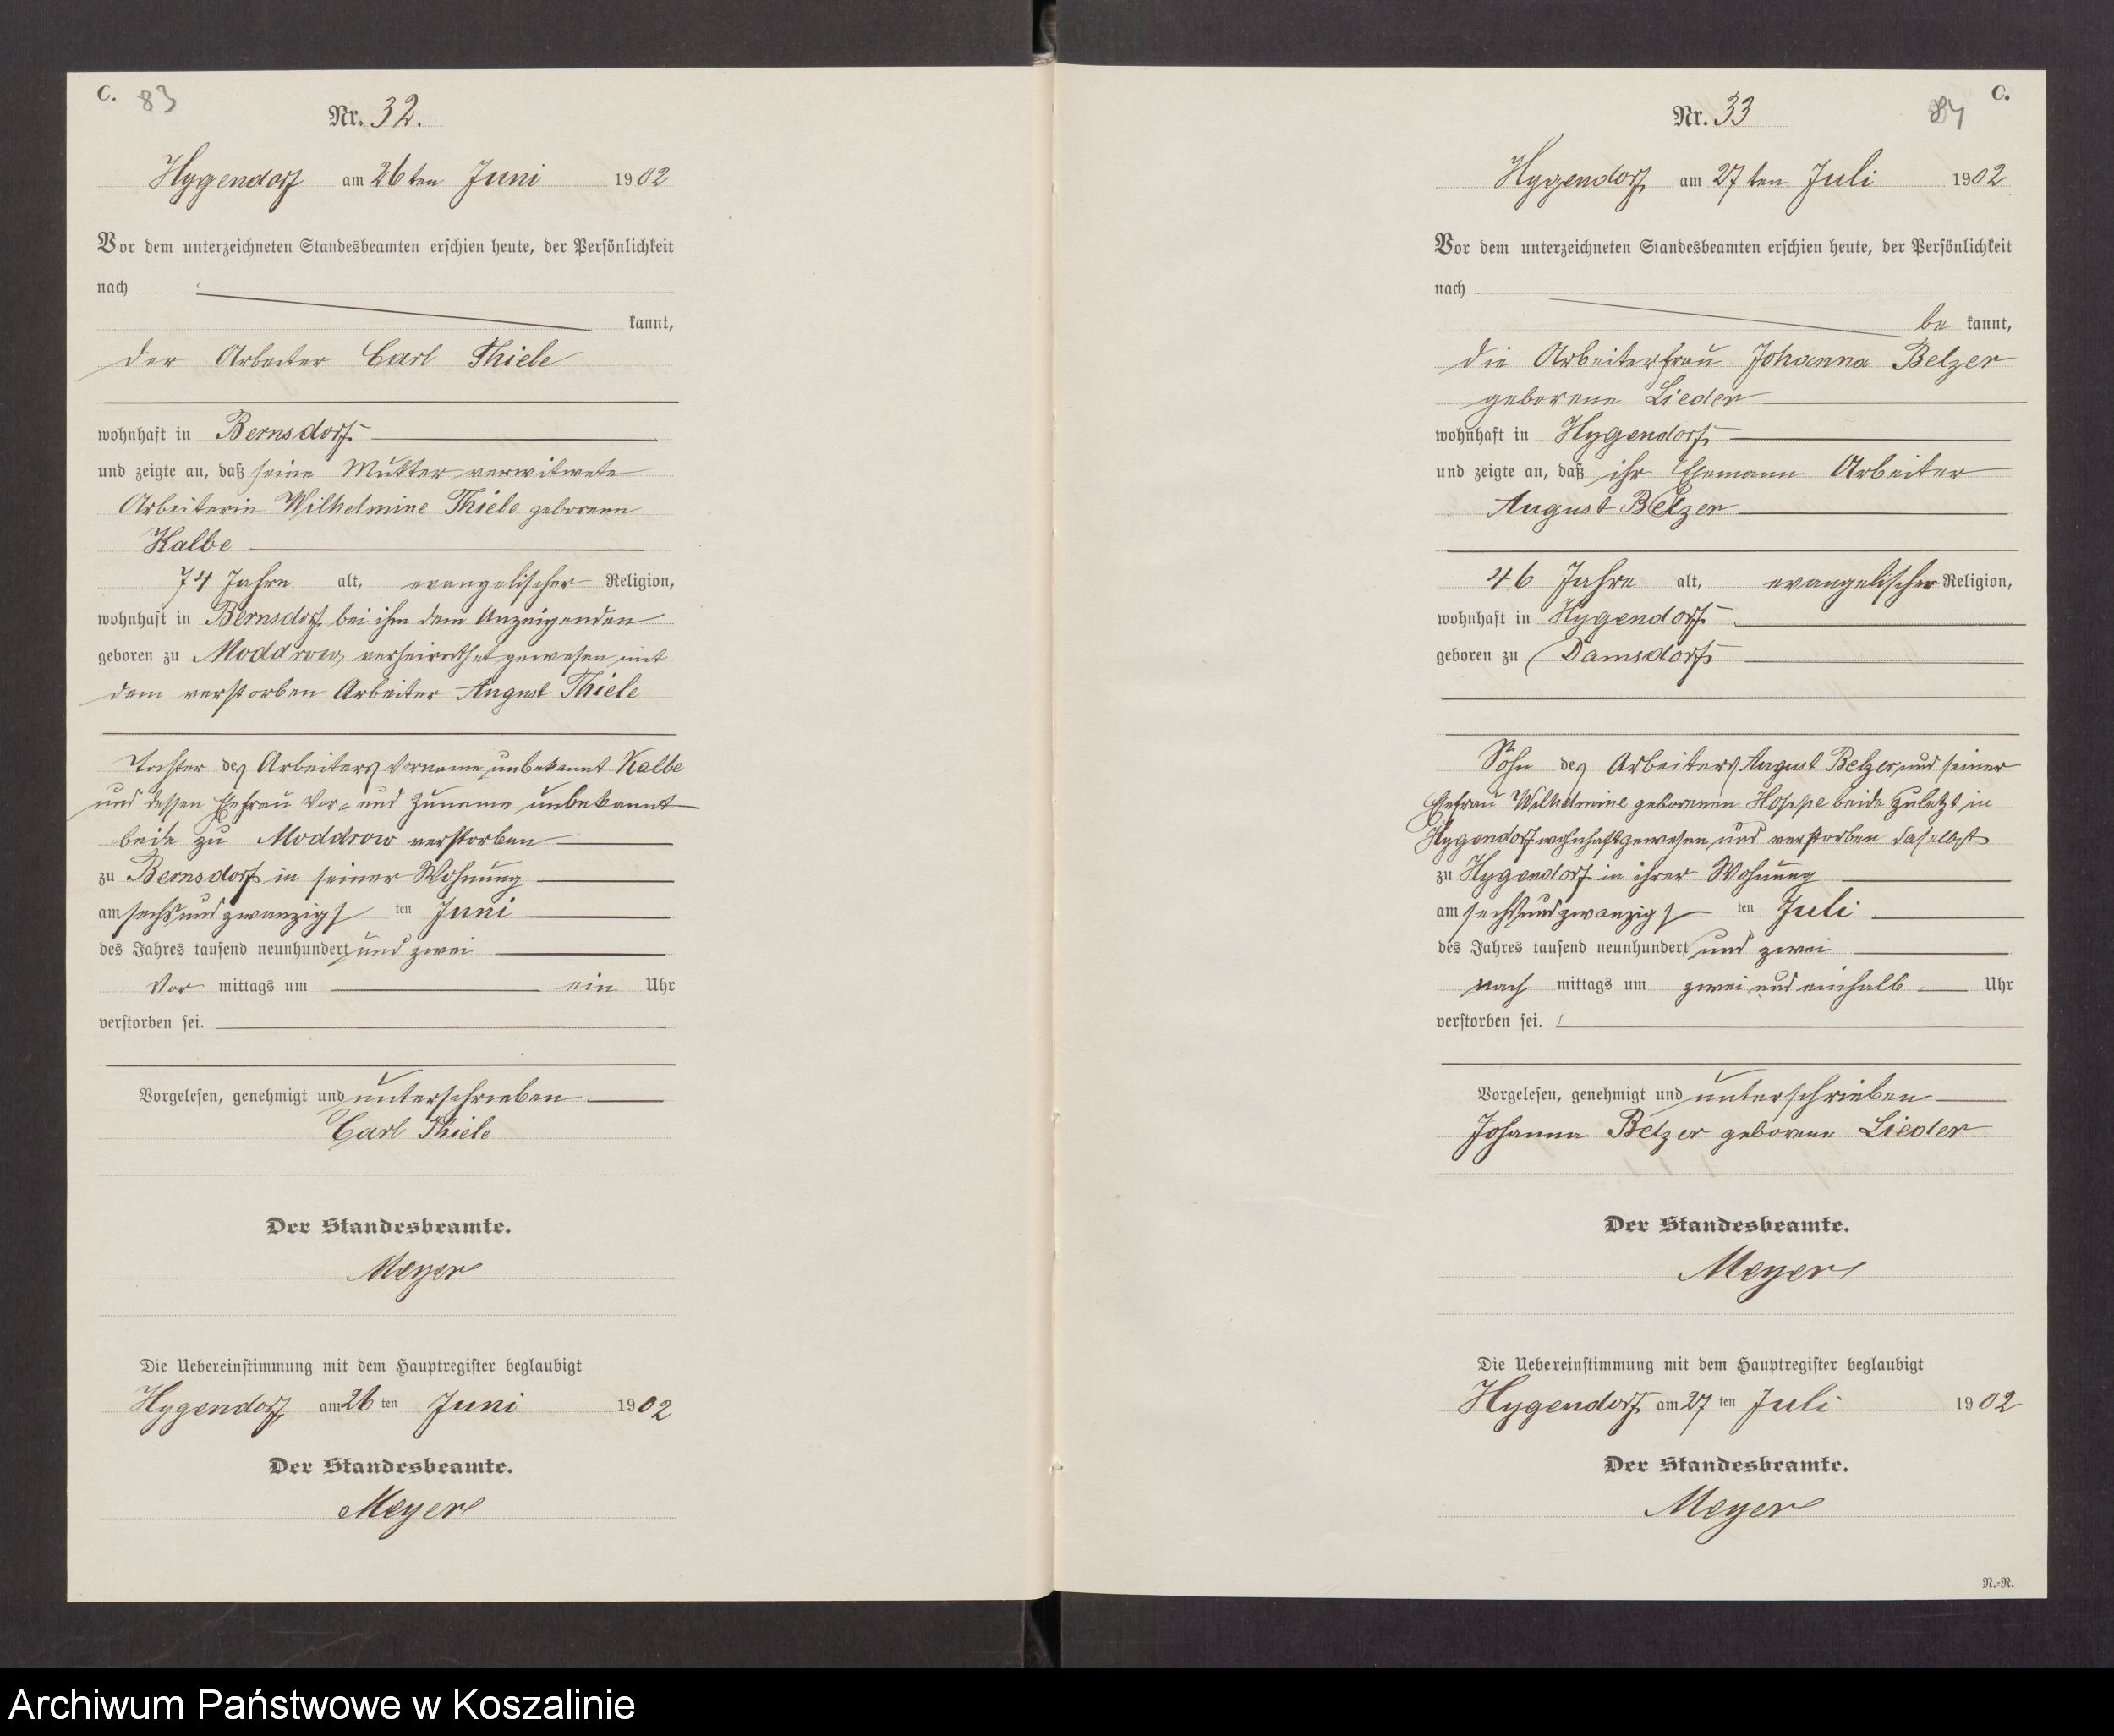 C. 83
Nr. 32.
Hygendorf am 26ten Juni 1902
Vor dem unterzeichneten Standesbeamten erschien heute, der Persönlichkeit
nach
kannt,
der Arbeiter Carl Thiele
wohnhaft in Bernsdorf
und zeigte an, daß seine Mutter verwitwete
Arbeiterin Wilhelmine Thiele geborene
Kalbe
74 Jahre alt, evangelischer Religion,
wohnhaft in Bernsdorf bei ihm dem Anzeigenden
geboren zu Moddrow, verheirathet gewesen mit
dem verstorben Arbeiter August Thiele
Tochter des Arbeiters Vorname unbekannt Kalbe
und dessen Ehefrau Vor- und Zuname unbekannt
beide zu Moddrow verstorben
zu Bernsdorf in seiner Wohnung
am sechsundzwanzigs ten Juni
des Jahres tausend neunhundert und zwei
Vor mittags um ein Uhr
verstorben sei.
Vorgelesen, genehmigt und unterschrieben
Carl Thiele
Der Standesbeamte.
Meyer
Die Uebereinstimmung mit dem Hauptregister beglaubigt
Hygendorf am 26 ten Juni 1902
Der Standesbeamte.
Meyer
84 C.
Nr. 33
Hygendorf am 27ten Juli 1902
Vor dem unterzeichneten Standesbeamten erschien heute, der Persönlichkeit
nach
be kannt,
die Arbeiterfrau Johanna Belzer
geborene Lieder
wohnhaft in Hygendorf
und zeigte an, daß ihr Ehemann Arbeiter
August Belzer
46 Jahre alt, evangelischer Religion,
wohnhaft in Hygendorf
geboren zu Damsdorf
Sohn des Arbeiters August Belzer und seiner
Ehefrau Wilhelmine geborenen Hoppe beide zuletzt in
Hygendorf wohnhaft gewesen und verstorben daselbst
zu Hygendorf in ihrer Wohnung
am sechsundzwanzigs ten Juli
des Jahres tausend neunhundert und zwei
nach mittags um zwei und einhalb Uhr
verstorben sei.
Vorgelesen, genehmigt und unterschrieben
Johanna Belzer geborene Lieder
Der Standesbeamte.
Meyer
Die Uebereinstimmung mit dem Hauptregister beglaubigt
Hygendorf am 27 ten Juli 1902
Der Standesbeamte.
Meyer
N.=R.
Archiwum Państwowe w Koszalinie